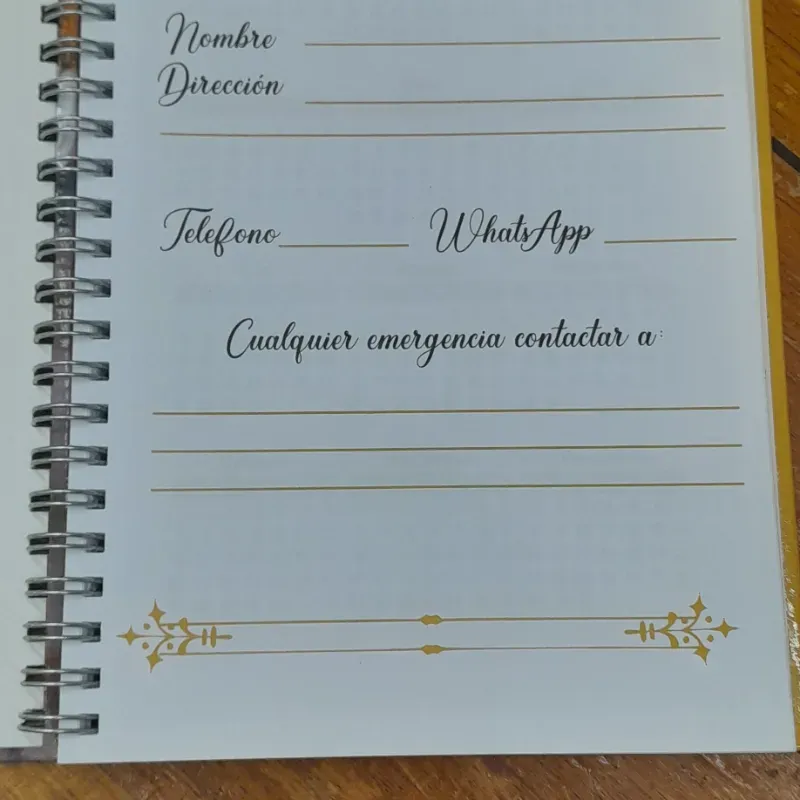 Nombre
Dirección
Telefono WhatsApp
Cualquier emergencia contactar a: